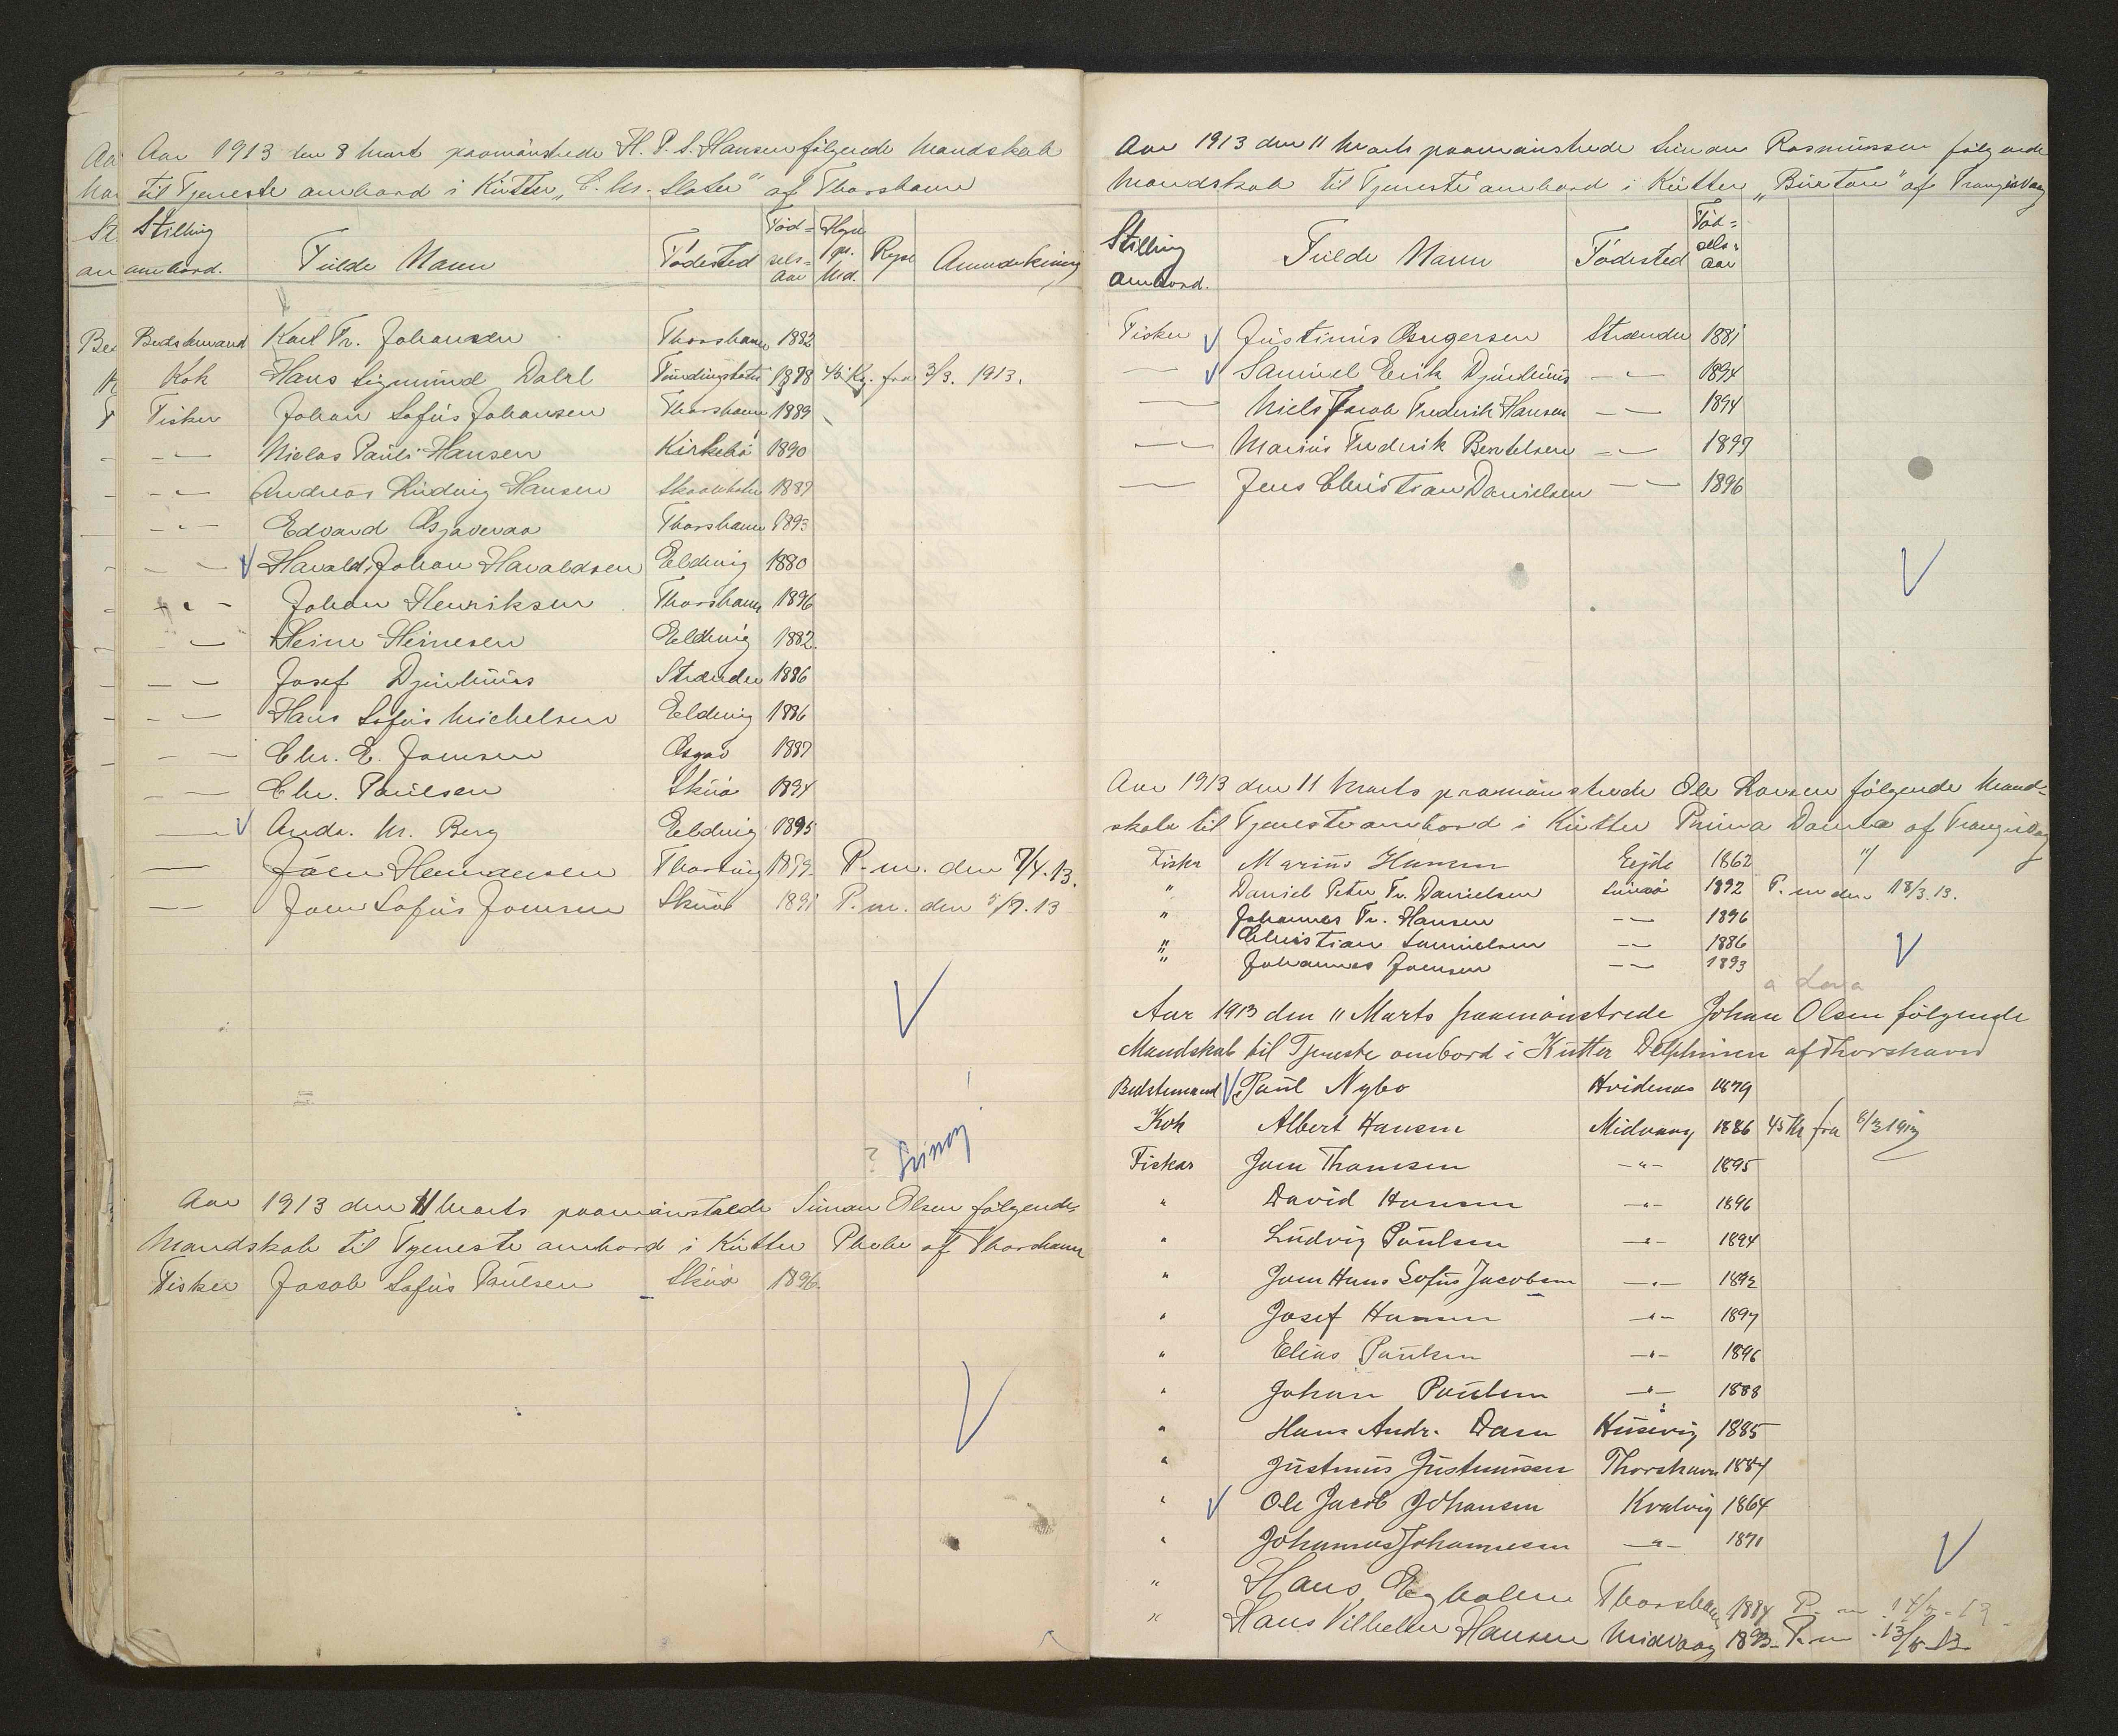 Aar 1913 den 8 Marts paamönstrede H. P. S. Hansen fölgende Mandskab
til Tjeneste ombord i Kutter „C. M. Slater" af Thorshavn
Stilling ombord. Fulde Navn Födested Födselsaar Hyre pr. Md. Rejse Anmærkning
Bedstemand Karl Fr. Johansen Thorshavn 1882
Kok Hans Sigmund Dahl 1878 Kr. fra 3/3. 1913.
Fisker Johan Sofus Johansen Thorshavn 1889
— Niclas Pauli Hansen Kirkebö 1890
— Andreas Ludvig Hansen 1887
— Edvard Thorshavn 1893
— Harald Johan Haraldsen Eldevig 1880
— Johan Henriksen Thorshavn 1896
— Heine Heinesen Eldevig 1882.
— Josef Djurhuus Strænder 1886
— Hans Sofus Michelsen Eldevig 1886
— Chr. E. Joensen 1887
— Chr. Paulsen Skuö 1894
— Andr. M. Berg Eldevig 1895
— Jóen Hermansen 1879 P.m. den 7/4.13.
— Joen Sofus Joensen Skuö 1891 P.m. den 5/7.13
?
Aar 1913 den 11 Marts Simon Olsen fölgende
Mandskab til Tjeneste ombord i Kutter Phebe af Thorshavn
Fisker Jacob Sofus Paulsen Skuö 1896.
Aar 1913 den 11 Marts paamönstrede Simon Rasmussen fölgende
Mandskab til Tjeneste ombord i Kutter „Buxton" af Trangisvaag
Stilling ombord. Fulde Navn Födested Födselsaar
Fisker Justinus Strænder 1881
— Samuel Erik Djurhuus — 1894
— Niels Jacob Frederik Hansen — 1894
— Marius Fredrik Berthelsen — 1897
— Jens Christian Danielsen — 1896
Aar 1913 den 11 Marts paamönstrede Ole Larsen fölgende Mand-
skab til Tjeneste ombord i Kutter Prima Donna af Trangisvaag
Fisker Marius Hansen Ejde 1862 "/
" Daniel Peter Fr. Danielsen 1892 P.m den 18/3.13.
" Johannes Fr. Hansen — 1896
" Christian Samuelsen — 1886
" Johannes Joensen — 1893
Aar 1913 den 11 Marts paamönstrede Johan Olsen fölgende
Mandskab til Tjeneste ombord i Kutter Delphinen af Thorshavn
Bedstemand Paul Nybo Hvidenæs 1879
Kok Albert Hansen Midvaag 1886 45 Kr fra 8/3 1913
Fisker Joen Thomsen —"— 1895
" David Hansen —"— 1896
" Ludvig Poulsen —"— 1894
" Joen Hans Sofus Jacobsen —"— 1892
" Josef Hansen —"— 1897
" Elias Poulsen —"— 1896
" Johan Poulsen —"— 1888
" Hans Andr. Dam Husevig 1885
" Justinus Justinussen Thorshavn 1884
" Ole Jacob Johansen Kvalvig 1864
" Johannes Johannesen —"— 1871
" Hans Egholm Thorshavn 1884
" Hans Vilhelm Hansen Midvaag P.m